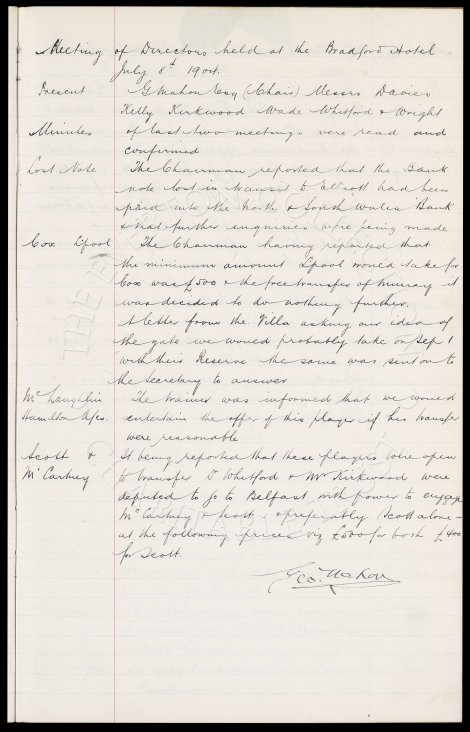 Meeting of Directors held at the Bradford Hotel
July 8th 1904.
Present G Mahon Esq (Chair) Messrs Davies
Kelly Kirkwood Wade Whitford & Wright
Minutes of last two meetings were read and
confirmed
Lost Note The Chairman reported that the Bank
note lost in transit to had been
paid into the North & South Wales Bank
& that further inquiries were being made
Cox Lpool The Chairman having reported that
the minimum amount Lpool would take for
Cox was £500 & the free transfer of Murray it
was decided to do nothing further.
A letter from the Villa asking our idea of
the gate we would probably take on Sep 1
with their Reserve the same was sent on to
the Secretary to answer
McLaughlin The trainer was informed that we would
Hamilton Acs. entertain the offer of this player if his transfer
were reasonable
Scott & It being reported that these players were open
McCartney to transfer Dr Whitford & Mr Kirkwood were
deputed to go to Belfast with power to engage
McCartney & Scott - preferably Scott alone -
at the following prices viz £500 for both £400
for Scott.
Geo. Mahon